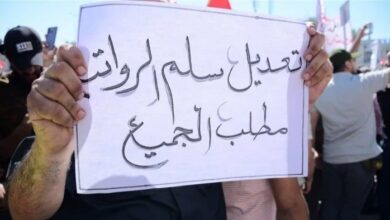 تعديل سلم الرواتب
مطلب الجميع